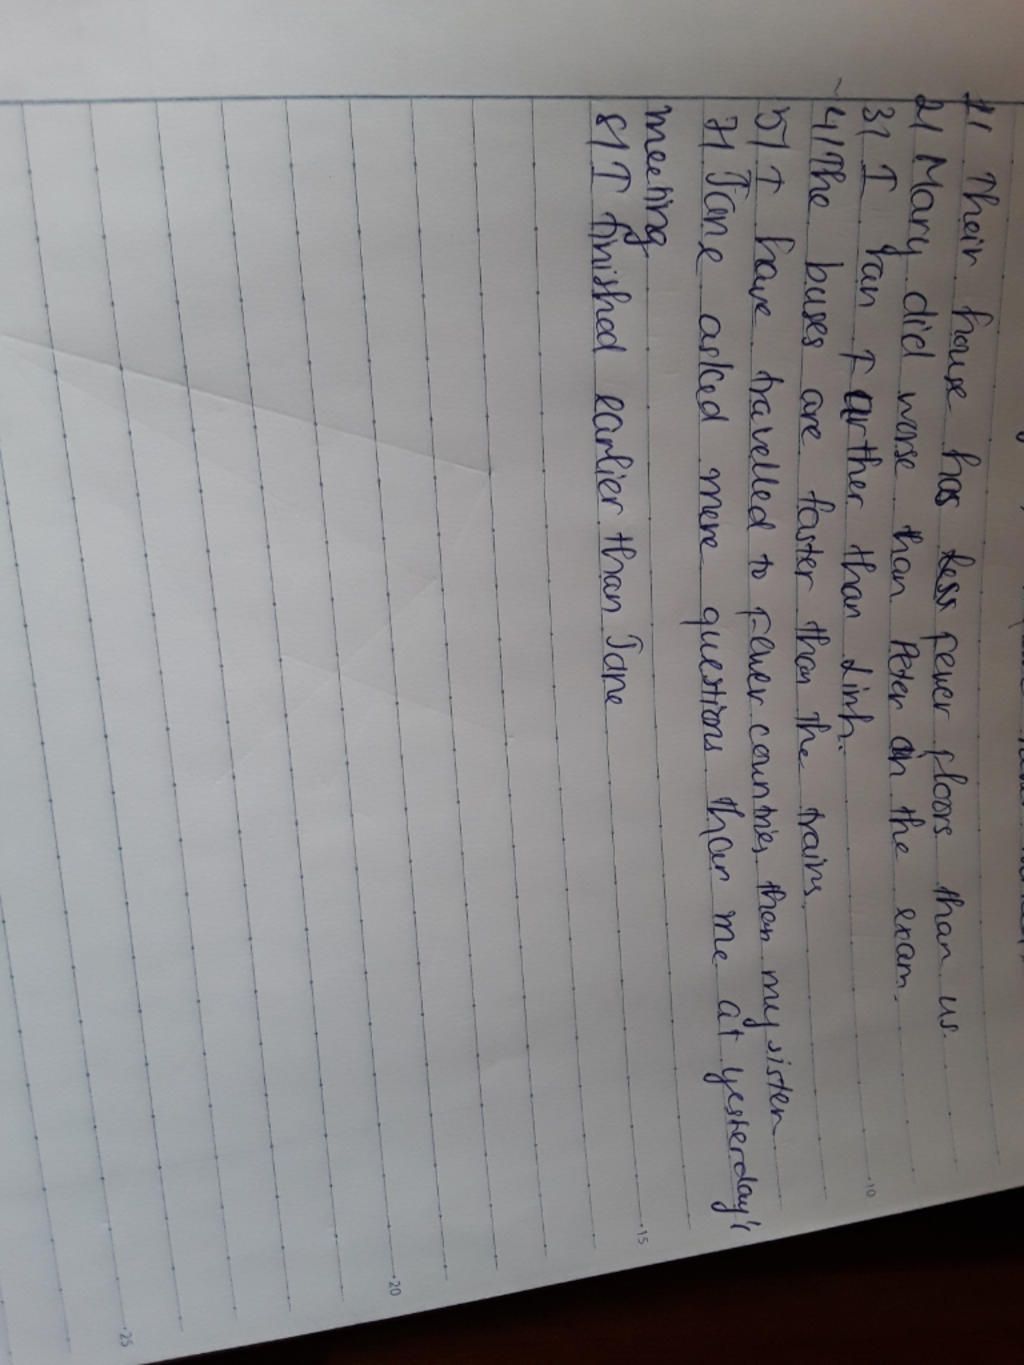 1) Their house has less fewer floors than us.
2) Mary did worse than Peter on the exam.
3) I ran farther than Linh.
4) The buses are faster than the trains.
5) I have travelled to fewer countries than my sister
7) Jane asked more questions than me at yesterday's
meeting
8) I finished earlier than Jane
10
15
20
25